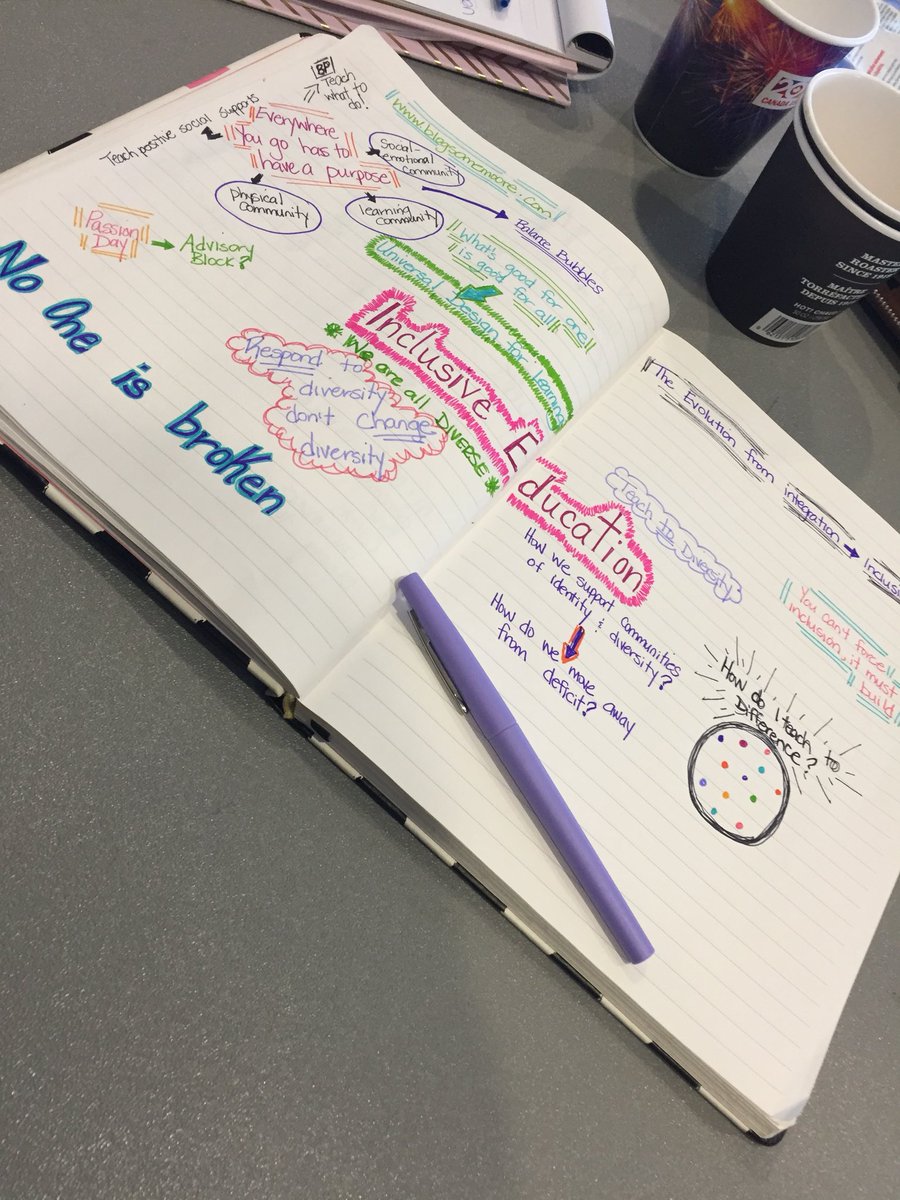 BP
Teach
what to
do!
Teach positive social supports
Everywhere
You go has to
have a purpose
Social-
emotional
community
physical
community
learning
community
Balance Bubbles
www.blogsomemoore.com
Passion
Day
Advisory
Block?
"What's good for one
is good for all"
Universal Design for Learning
Inclusive Education
* We are all DIVERSE *
Respond to
diversity
don't change
diversity
No One is broken
The Evolution from integration → Inclusi
Teach to Diversity
How we support communities
of identity & diversity?
How do we move away
from deficit?
You can't force
inclusion, it must
build
How do I teach to
Difference?
CANADA
MASTER
ROASTER
SINCE
MAÎTRE
TORRÉFACTEUR
DEPUIS